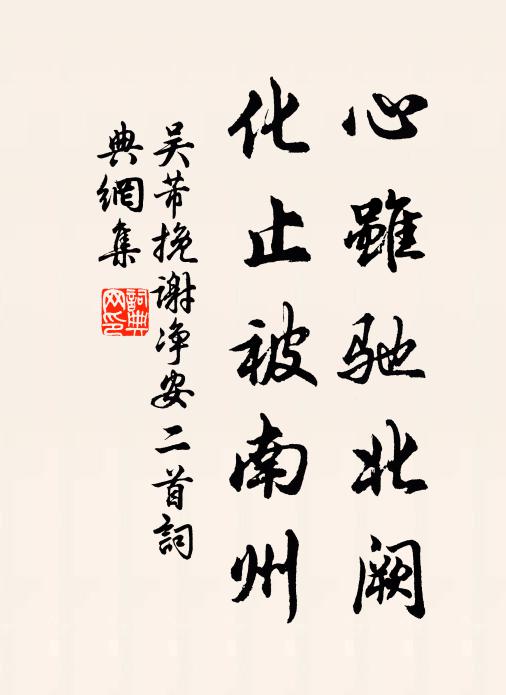 心雖馳北阙
化止被南州
吴芾挽謝净安二首詞
典網集
詞典
网印